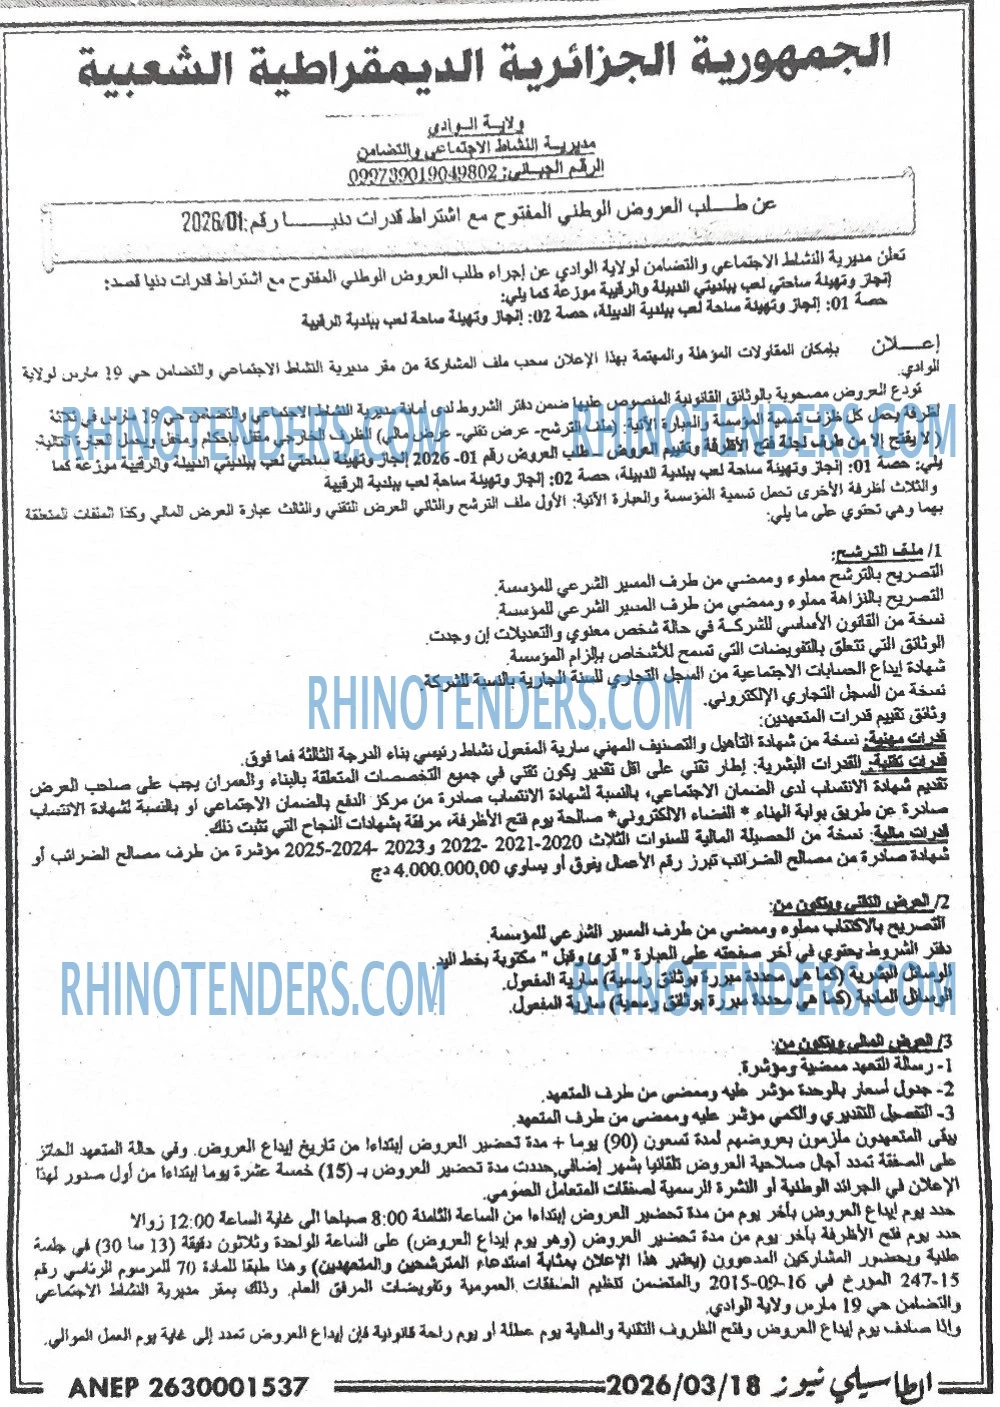 الجمهورية الجزائرية الديمقراطية الشعبية
ولاية الوادي
مديرية النشاط الاجتماعي والتضامن
الرقم الجبائي: 099739019049802
عن طلب العروض الوطني المفتوح مع اشتراط قدرات دنيا رقم: 2026/01
تعلن مديرية النشاط الاجتماعي والتضامن لولاية الوادي عن إجراء طلب العروض الوطني المفتوح مع اشتراط قدرات دنيا قصد:
إنجاز وتهيئة ساحتي لعب ببلديتي الدبيلة والرقيبة موزعة كما يلي:
حصة 01: إنجاز وتهيئة ساحة لعب ببلدية الدبيلة، حصة 02: إنجاز وتهيئة ساحة لعب ببلدية الرقيبة
إعلان بإمكان المقاولات المؤهلة والمهتمة بهذا الإعلان سحب ملف المشاركة من مقر مديرية النشاط الاجتماعي والتضامن حي 19 مارس لولاية
الوادي.
تودع العروض مصحوبة بالوثائق القانونية المنصوص عليها ضمن دفتر الشروط لدى أمانة مديرية النشاط الاجتماعي والتضامن حي 19 مارس في ثلاثة
أظرفة يحمل كل ظرف تسمية المؤسسة والعبارة الآتية: (ملف الترشح- عرض تقني- عرض مالي) الظرف الخارجي مقفل بإحكام ومغفل ويحمل العبارة التالية:
(لا يفتح إلا من طرف لجنة فتح الأظرفة وتقييم العروض - طلب العروض رقم 01- 2026 إنجاز وتهيئة ساحتي لعب ببلديتي الدبيلة والرقيبة موزعة كما
يلي: حصة 01: إنجاز وتهيئة ساحة لعب ببلدية الدبيلة، حصة 02: إنجاز وتهيئة ساحة لعب ببلدية الرقيبة
والثلاث أظرفة الأخرى تحمل تسمية المؤسسة والعبارة الآتية: الأول ملف الترشح والثاني العرض التقني والثالث عبارة العرض المالي وكذا الملفات المتعلقة
بهما وهي تحتوي على ما يلي:
1/ ملف الترشح:
التصريح بالترشح مملوء وممضي من طرف المسير الشرعي للمؤسسة.
التصريح بالنزاهة مملوء وممضي من طرف المسير الشرعي للمؤسسة.
نسخة من القانون الأساسي للشركة في حالة شخص معنوي والتعديلات إن وجدت.
الوثائق التي تتعلق بالتفويضات التي تسمح للأشخاص بإلزام المؤسسة.
شهادة إيداع الحسابات الاجتماعية من السجل التجاري للسنة الجارية بالنسبة للشركة.
نسخة من السجل التجاري الإلكتروني.
وثائق تقييم قدرات المتعهدين:
قدرات مهنية: نسخة من شهادة التأهيل والتصنيف المهني سارية المفعول نشاط رئيسي بناء الدرجة الثالثة فما فوق.
قدرات تقنية: القدرات البشرية: إطار تقني على اقل تقدير يكون تقني في جميع التخصصات المتعلقة بالبناء والعمران يجب على صاحب العرض
تقديم شهادة الانتساب لدى الضمان الاجتماعي، بالنسبة لشهادة الانتساب صادرة من مركز الدفع بالضمان الاجتماعي أو بالنسبة لشهادة الانتساب
صادرة عن طريق بوابة الهناء * الفضاء الالكتروني* صالحة يوم فتح الأظرفة، مرفقة بشهادات النجاح التي تثبت ذلك.
قدرات مالية: نسخة من الحصيلة المالية للسنوات الثلاث 2020-2021 -2022 و2023 -2024-2025 مؤشرة من طرف مصالح الضرائب أو
شهادة صادرة من مصالح الضرائب تبرز رقم الأعمال يفوق أو يساوي 4.000.000,00 دج
2/ العرض التقني ويتكون من:
التصريح بالاكتتاب مملوء وممضي من طرف المسير الشرعي للمؤسسة.
دفتر الشروط يحتوي في آخر صفحته على العبارة " قرئ وقبل " مكتوبة بخط اليد.
الوسائل البشرية (كما هي محددة مبررة بوثائق رسمية) سارية المفعول.
الوسائل المادية (كما هي محددة مبررة بوثائق رسمية) سارية المفعول.
3/ العرض المالي ويتكون من:
1- رسالة التعهد ممضية ومؤشرة.
2- جدول أسعار بالوحدة مؤشر عليه وممضي من طرف المتعهد.
3- التفصيل التقديري والكمي مؤشر عليه وممضي من طرف المتعهد.
يبقى المتعهدون ملزمون بعروضهم لمدة تسعون (90) يوما + مدة تحضير العروض إبتداءا من تاريخ إيداع العروض. وفي حالة المتعهد الحائز
على الصفقة تمدد آجال صلاحية العروض تلقائيا بشهر إضافي,حددت مدة تحضير العروض بـ (15) خمسة عشرة يوما إبتداءا من أول صدور لهذا
الإعلان في الجرائد الوطنية أو النشرة الرسمية لصفقات المتعامل العمومي.
حدد يوم إيداع العروض بآخر يوم من مدة تحضير العروض إبتداءا من الساعة الثامنة 8:00 صباحا الى غاية الساعة 12:00 زوالا
حدد يوم فتح الأظرفة بآخر يوم من مدة تحضير العروض (وهو يوم إيداع العروض) على الساعة الواحدة وثلاثون دقيقة (13 سا 30) في جلسة
علنية وبحضور المشاركين المدعوون (يعتبر هذا الإعلان بمثابة استدعاء المترشحين والمتعهدين) وهذا طبقا للمادة 70 للمرسوم الرئاسي رقم
15-247 المؤرخ في 16-09-2015 والمتضمن تنظيم الصفقات العمومية وتفويضات المرفق العام. وذلك بمقر مديرية النشاط الاجتماعي
والتضامن حي 19 مارس ولاية الوادي.
وإذا صادف يوم إيداع العروض وفتح الظروف التقنية والمالية يوم عطلة أو يوم راحة قانونية فإن إيداع العروض تمدد إلى غاية يوم العمل الموالي.
الطاسيلي نيوز 2026/03/18 ANEP 2630001537
RHINOTENDERS.COM RHINOTENDERS.COM
RHINOTENDERS.COM
RHINOTENDERS.COM RHINOTENDERS.COM